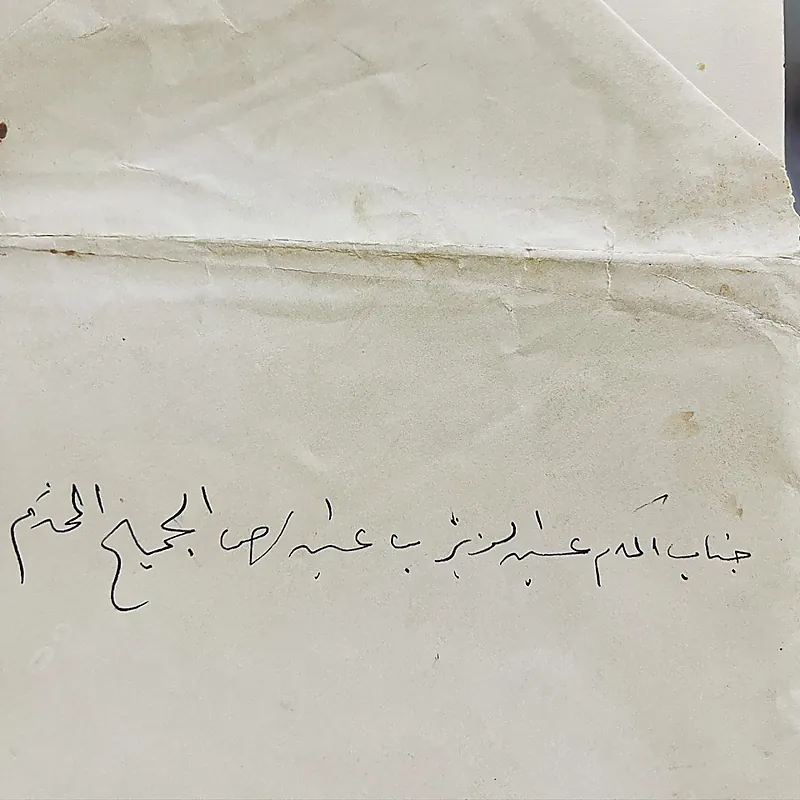 جناب المكرم عبد العزيز بن عبد الرحمن الجميح المحترم